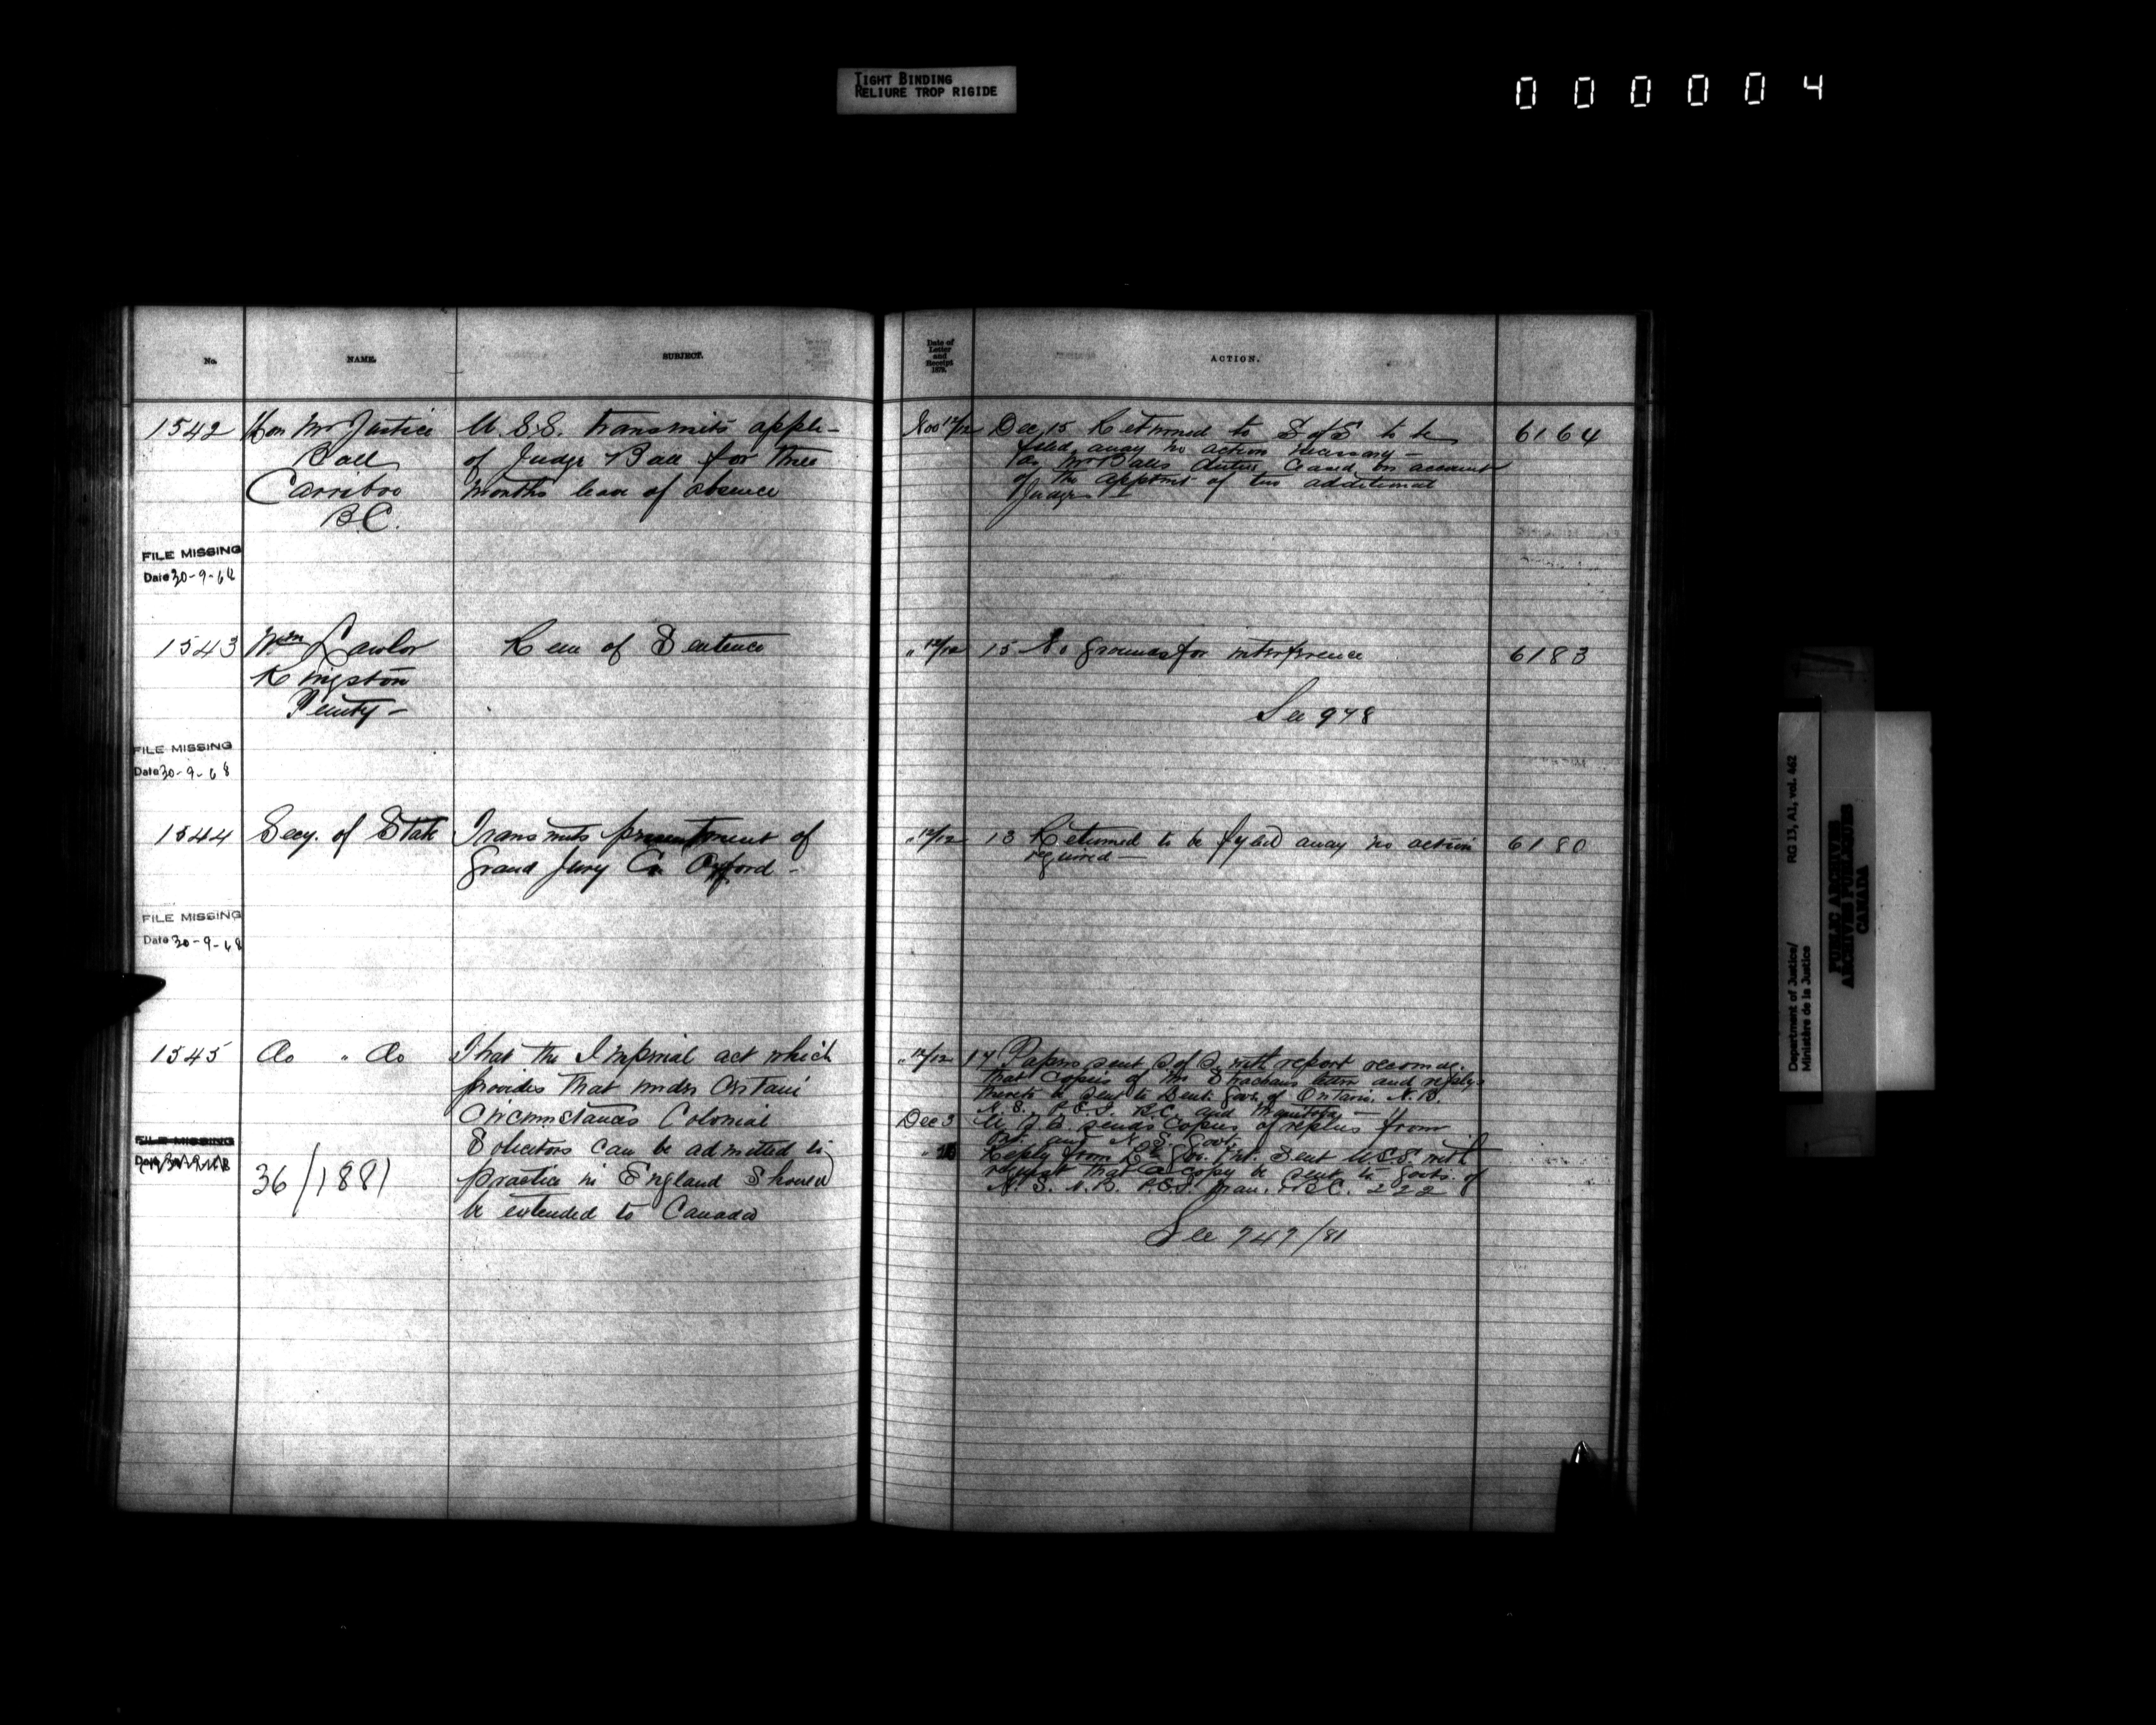 TIGHT BINDING
RELIURE TROP RIGIDE
000004
No.
NAME.
SUBJECT.
Date of
Letter
and
Receipt
1879.
ACTION.
1542
Hon Mr Justice
Ball
Carriboo
B.C.
U.S.S. transmits appli-
of Judge Ball for three
months leave of absence
Nov 12/12
Dec 15 Returned to S of S to be
filed away no action necessary -
as Mr Balls duties ceased on account
of the appoint of two additional
Judges
6164
FILE MISSING
Date 30-9-68
1543
Wm Lawlor
Kingston
Penity -
Rem of Sentence
" 12/12
15 No grounds for interference
See 978
6183
FILE MISSING
Date 30-9-68
1544
Secy. of State
Transmits presentment of
Grand Jury Co. Oxford -
" 12/12
13 Returned to be fyled away no action
required —
6180
FILE MISSING
Date 30-9-68
1545
Do " Do
That the Imperial act which
provides that under Certain
Circumstances Colonial
Solicitors can be admitted to
practice in England should
be extended to Canada
36/1881
" 12/12
17 Papers sent S of S. with report recomdg.
that Copies of Mr Strachans letter and reply
thereto be sent to Lieut. Govs. of Ontario, N.B.
N.S., P.E.I. B.C. and Manitoba —
Dec 3
U.S.S. sends Copies of replies from
and N.S. Govt.
Reply from Lt. Gov. Ont. Sent U.S.S. with
request that a copy be sent to Govts. of
N.S. N.B. P.E.I. Man. & B.C. 222
See 747/81
FILE MISSING
Department of Justice/
Ministère de la Justice
RG 13, A1, vol. 462
PUBLIC ARCHIVES
ARCHIVES PUBLIQUES
CANADA